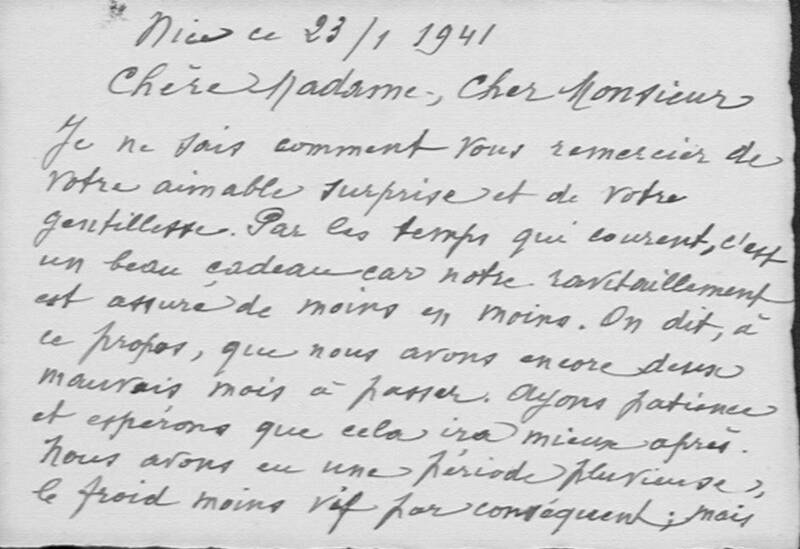 Nice ce 23/1 1941
Chère Madame, Cher Monsieur
Je ne sais comment vous remercier de
votre aimable surprise et de votre
gentillesse. Par les temps qui courent, c'est
un beau cadeau car notre ravitaillement
est assuré de moins en moins. On dit, à
ce propos, que nous avons encore deux
mauvais mois à passer. Ayons patience
et espérons que cela ira mieux après.
Nous avons eu une période pluvieuse,
le froid moins vif par conséquent; mais